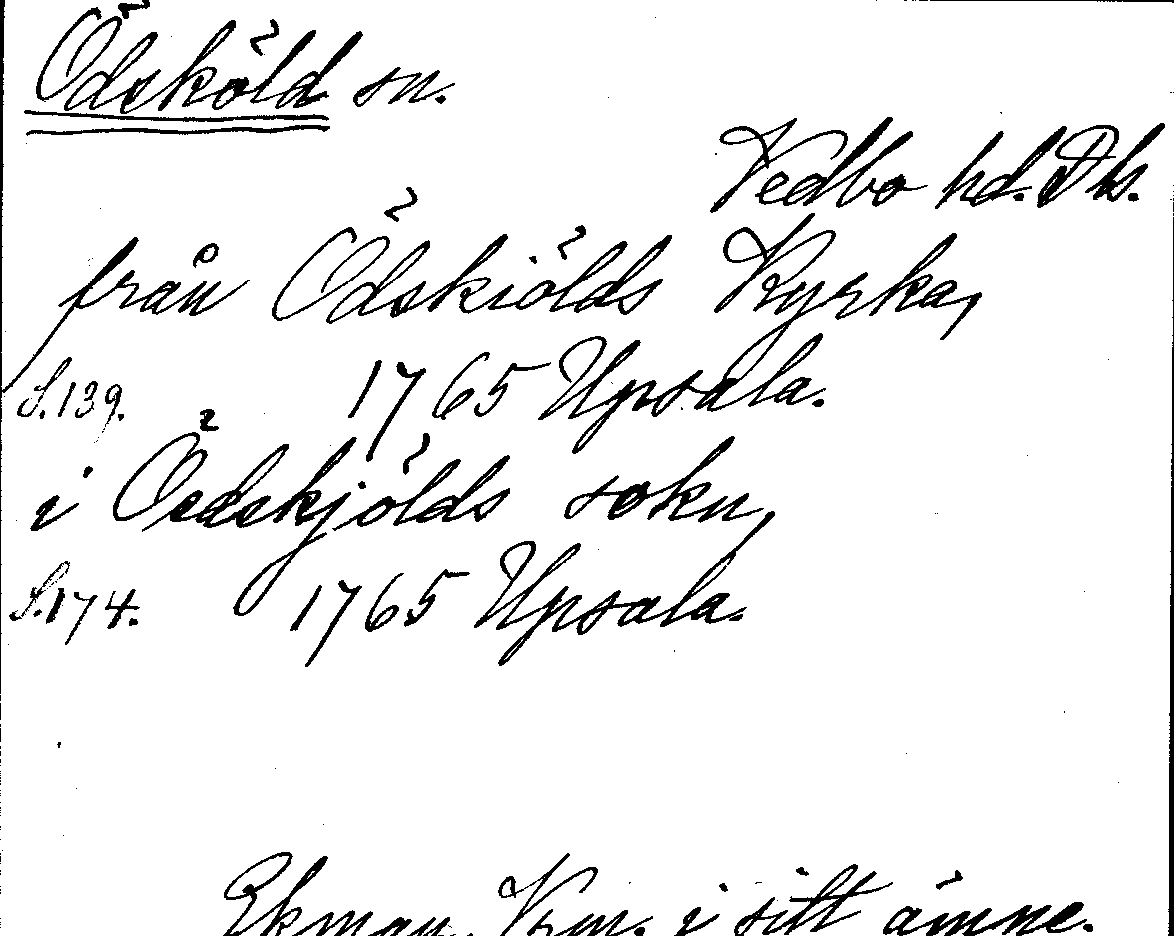 Ödsköld sn.
Vedbo hd. Dls.
från Ödskiölds Kyrka,
S. 139. 1765 Upsala.
i Ödedskjölds sokn,
S. 174. 1765 Upsala.
Ekman, Vrm. i sitt ämne.